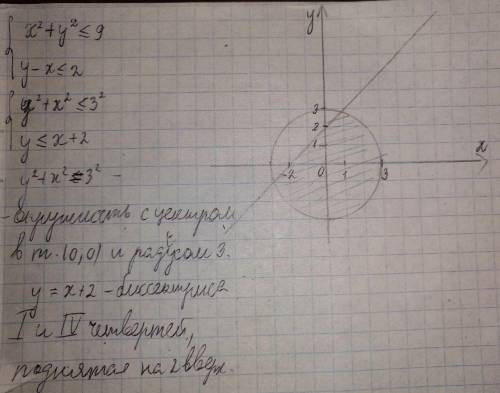 x²+y²≤9
y-x≤2
y²+x²≤3²
y≤x+2
y²+x²≤3² -
- окружность с центром
в т. (0,0) и радиусом 3.
y=x+2 - биссектриса
I и IV четвертей,
поднятая на 2 вверх.
y
3
2
1
-2 0 1 3
x